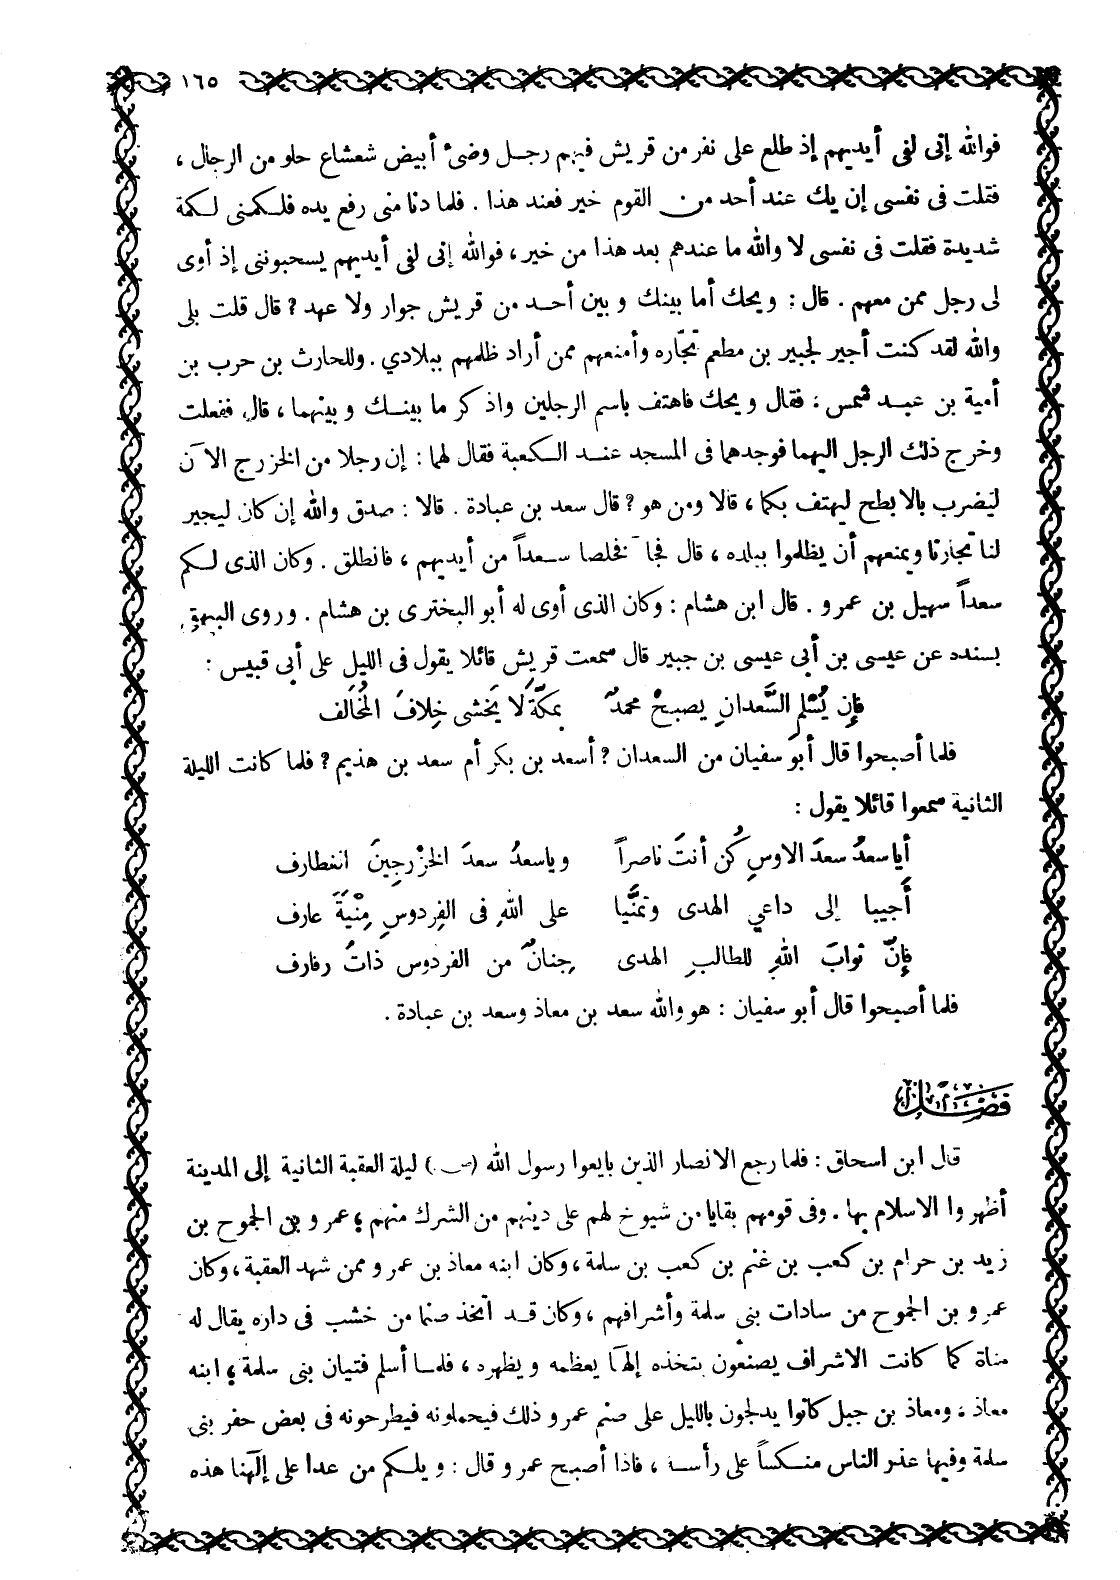 ١٦٥
فوالله إنى لفى أيديهم إذ طلع على نفر من قريش فيهم رجل وضئ أبيض شعشاع حلو من الرجال ،
فقلت فى نفسى إن يك عند أحد من القوم خير فعند هذا . فلما دنا منى رفع يده فلكمنى لكمة
شديدة فقلت فى نفسى لا والله ما عندهم بعد هذا من خير ، فوالله إنى لفى أيديهم يسحبوننى إذ أوى
لى رجل ممن معهم . قال : ويحك أما بينك وبين أحد من قريش جوار ولا عهد ? قال قلت بلى
والله لقد كنت أجير لجبير بن مطعم تجّاره وأمنعهم ممن أراد ظلمهم ببلادي . وللحارث بن حرب بن
أمية بن عبد شمس ، فقال ويحك فاهتف باسم الرجلين واذكر ما بينك وبينهما ، قال ففعلت
وخرج ذلك الرجل اليهما فوجدهما فى المسجد عند الكعبة فقال لهما : إن رجلا من الخزرج الآن
ليضرب بالابطح ليهتف بكما ، قالا ومن هو ? قال سعد بن عبادة . قالا : صدق والله إن كان ليجير
لنا تجارنا ويمنعهم أن يظلموا ببلده ، قال فجاآ فخلصا سعداً من أيديهم ، فانطلق . وكان الذى لكم
سعداً سهيل بن عمرو . قال ابن هشام : وكان الذى أوى له أبو البخترى بن هشام . وروى البيهقى
بسنده عن عيسى بن أبي عيسى بن جبير قال سمعت قريش قائلا يقول فى الليل على أبى قبيس :
فإِن يُسْلِمِ السَّعدانِ يصبحْ محمدٌ بمكَّةَ لا يَخشى خِلافَ المُخالف
فلما أصبحوا قال أبو سفيان من السعدان ? أسعد بن بكر أم سعد بن هذيم ? فلما كانت الليلة
الثانية سمعوا قائلا يقول :
أيا سعدُ سعدَ الاوسِ كُن أنتَ ناصراً وياسعدُ سعدَ الخزْرجِينَ الغطارف
أَجيبا إلى داعي الهدى وتمنَّيا على اللهِ فى الفِردوسِ مِنْيَةَ عارف
فإنّ ثوابَ اللهِ للطالبِ الهدى جِنانٌ من الفردوس ذاتُ رفارف
فلما أصبحوا قال أبو سفيان : هو والله سعد بن معاذ وسعد بن عبادة .
فصل
قال ابن اسحاق : فلما رجع الانصار الذين بايعوا رسول الله (ص) ليلة العقبة الثانية إلى المدينة
أظهروا الاسلام بها . وفى قومهم بقايا من شيوخ لهم على دينهم من الشرك منهم ؛ عمرو بن الجموح بن
زيد بن حرام بن كعب بن غنم بن كعب بن سلمة ، وكان ابنه معاذ بن عمرو ممن شهد العقبة ، وكان
عمرو بن الجموح من سادات بنى سلمة وأشرافهم ، وكان قد اتخذ صنما من خشب فى داره يقال له
مناة كما كانت الاشراف يصنعون يتخذه إلهاً يعظمه ويظهره ، فلما أسلم فتيان بنى سلمة ؛ ابنه
معاذ ، ومعاذ بن جبل كانوا يدلجون بالليل على صنم عمرو ذلك فيحملونه فيطرحونه فى بعض حفر بنى
سلمة وفيها عذر الناس منكساً على رأسه ، فاذا أصبح عمرو قال : ويلكم من عدا على إلهنا هذه